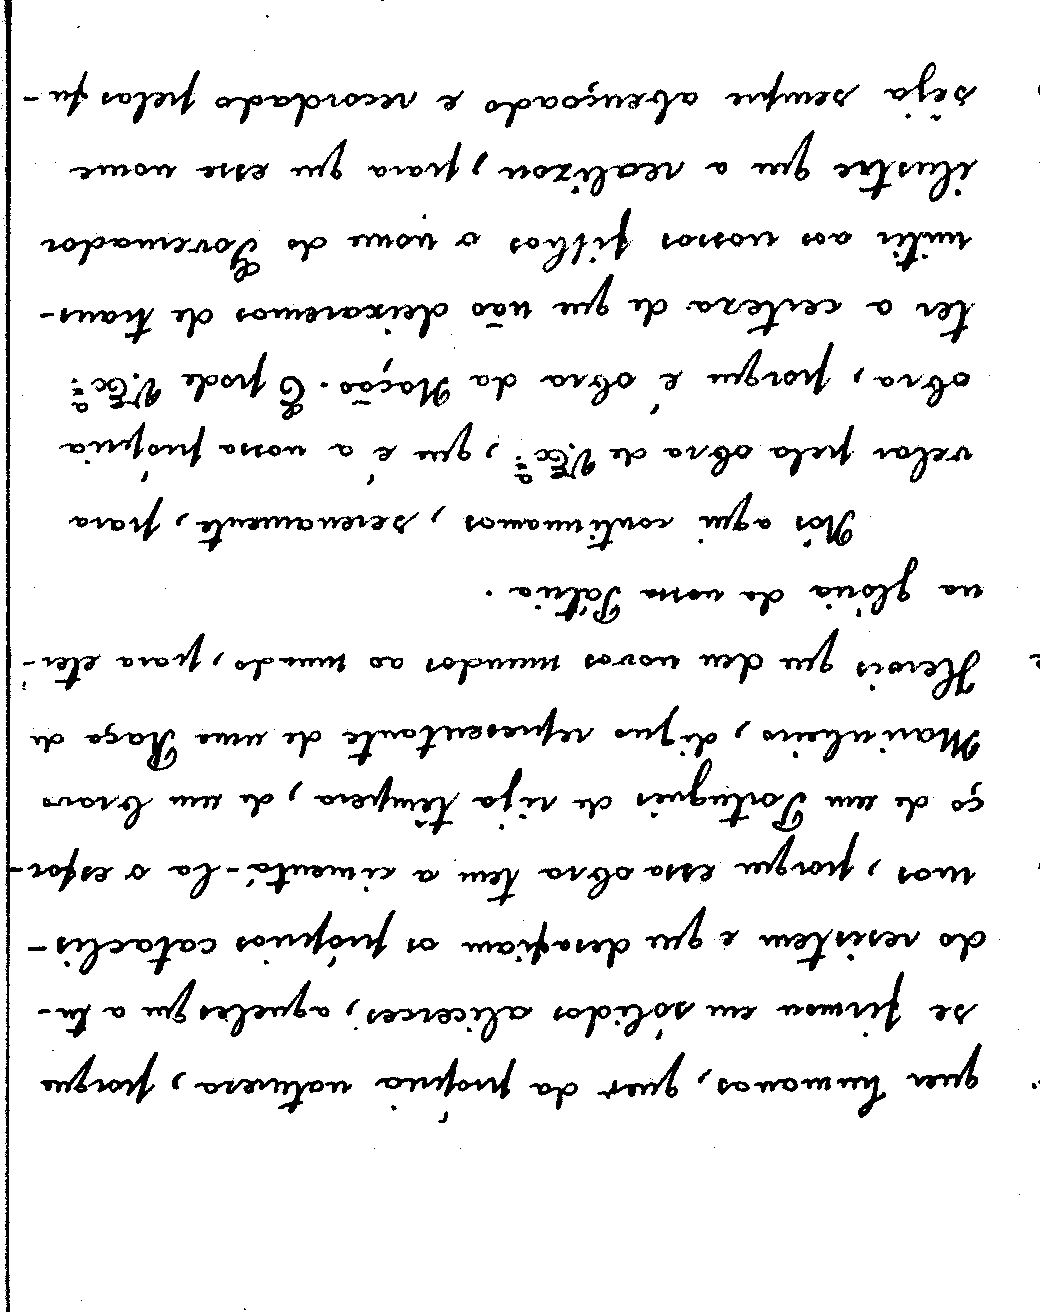 quer humanos, quer da própria natureza, porque
se firmou em sólidos alicerces, aqueles que a tu-
do resistem e que desafiam os próprios cataclis-
mos, porque essa obra tem a cimentá-la o esfor-
ço de um Português de rija têmpera, de um bravo
Marinheiro, digno representante de uma Raça de
Herois que deu novos mundos ao mundo, para eter-
na glória da nossa Pátria.
Nós aqui continuamos, serenamente, para
velar pela obra de V. Ex.ª, que é a nossa própria
obra, porque é obra da Nação. E pode V. Ex.ª
ter a certeza de que não deixaremos de trans-
mitir aos nossos filhos o nome do Governador
ilustre que a realizou, para que esse nome
seja sempre abençoado e recordado pelos fu-